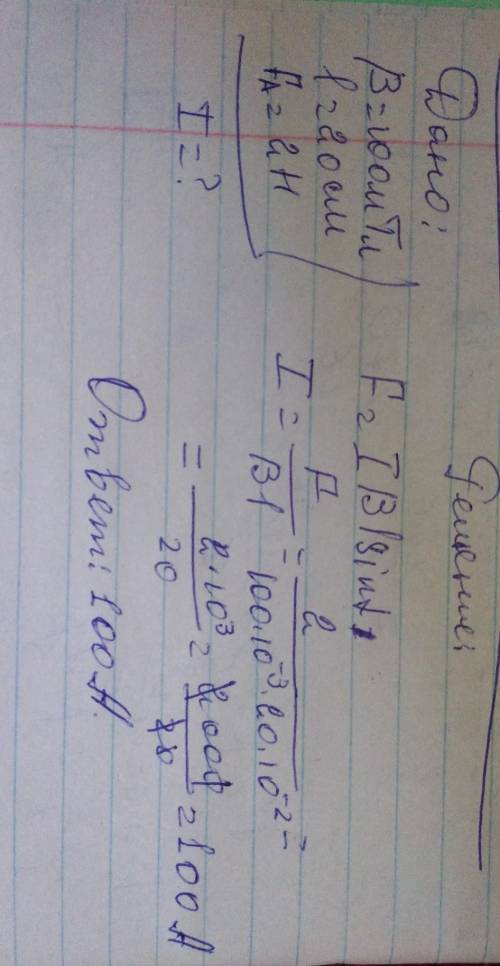 Дано:
B = 100 мТл
l = 20 см
FА = 2 Н
I = ?
Решение:
F = I B l sin α
I = F / Bl = 2 / 100·10⁻³·20·10⁻² =
= 2·10³ / 20 = 2000 / 20 = 100 А
Ответ: 100 А.